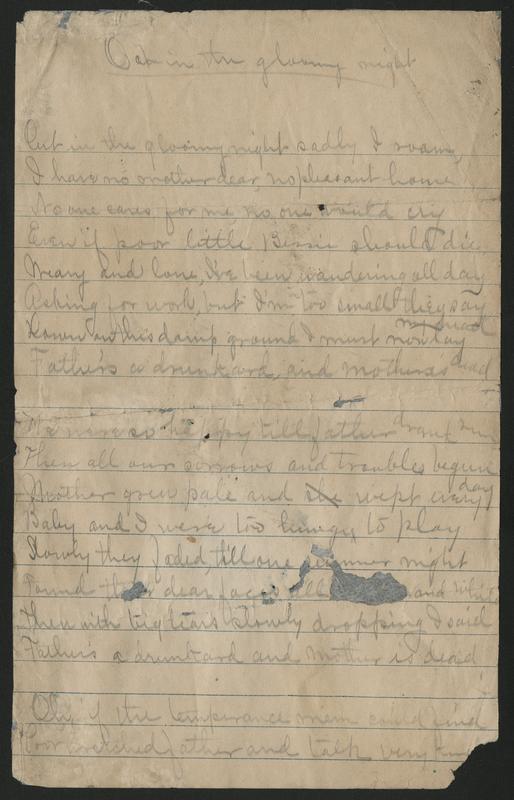 Out in the gloomy night
Out in the gloomy night sadly I roam,
I have no mother dear, no pleasant home
No one cares for me, no one would cry
Even if poor little Bessie should die.
Weary and lone, I've been wandering all day
Asking for work, but I'm too small they say
my head
Down on this damp ground I must now lay
Father's a drunkard, and mother's dead
We were so happy till father drank rum
Then all our sorrows and troubles begun
Mother grew pale and she wept every day
Baby and I were too hungry to play
Slowly they faded, till one summer night
Found their dear faces all and white
Then with big tears slowly dropping I said
Father's a drunkard and mother is dead
Oh, if the temperance men could find
Poor wretched father and talk very